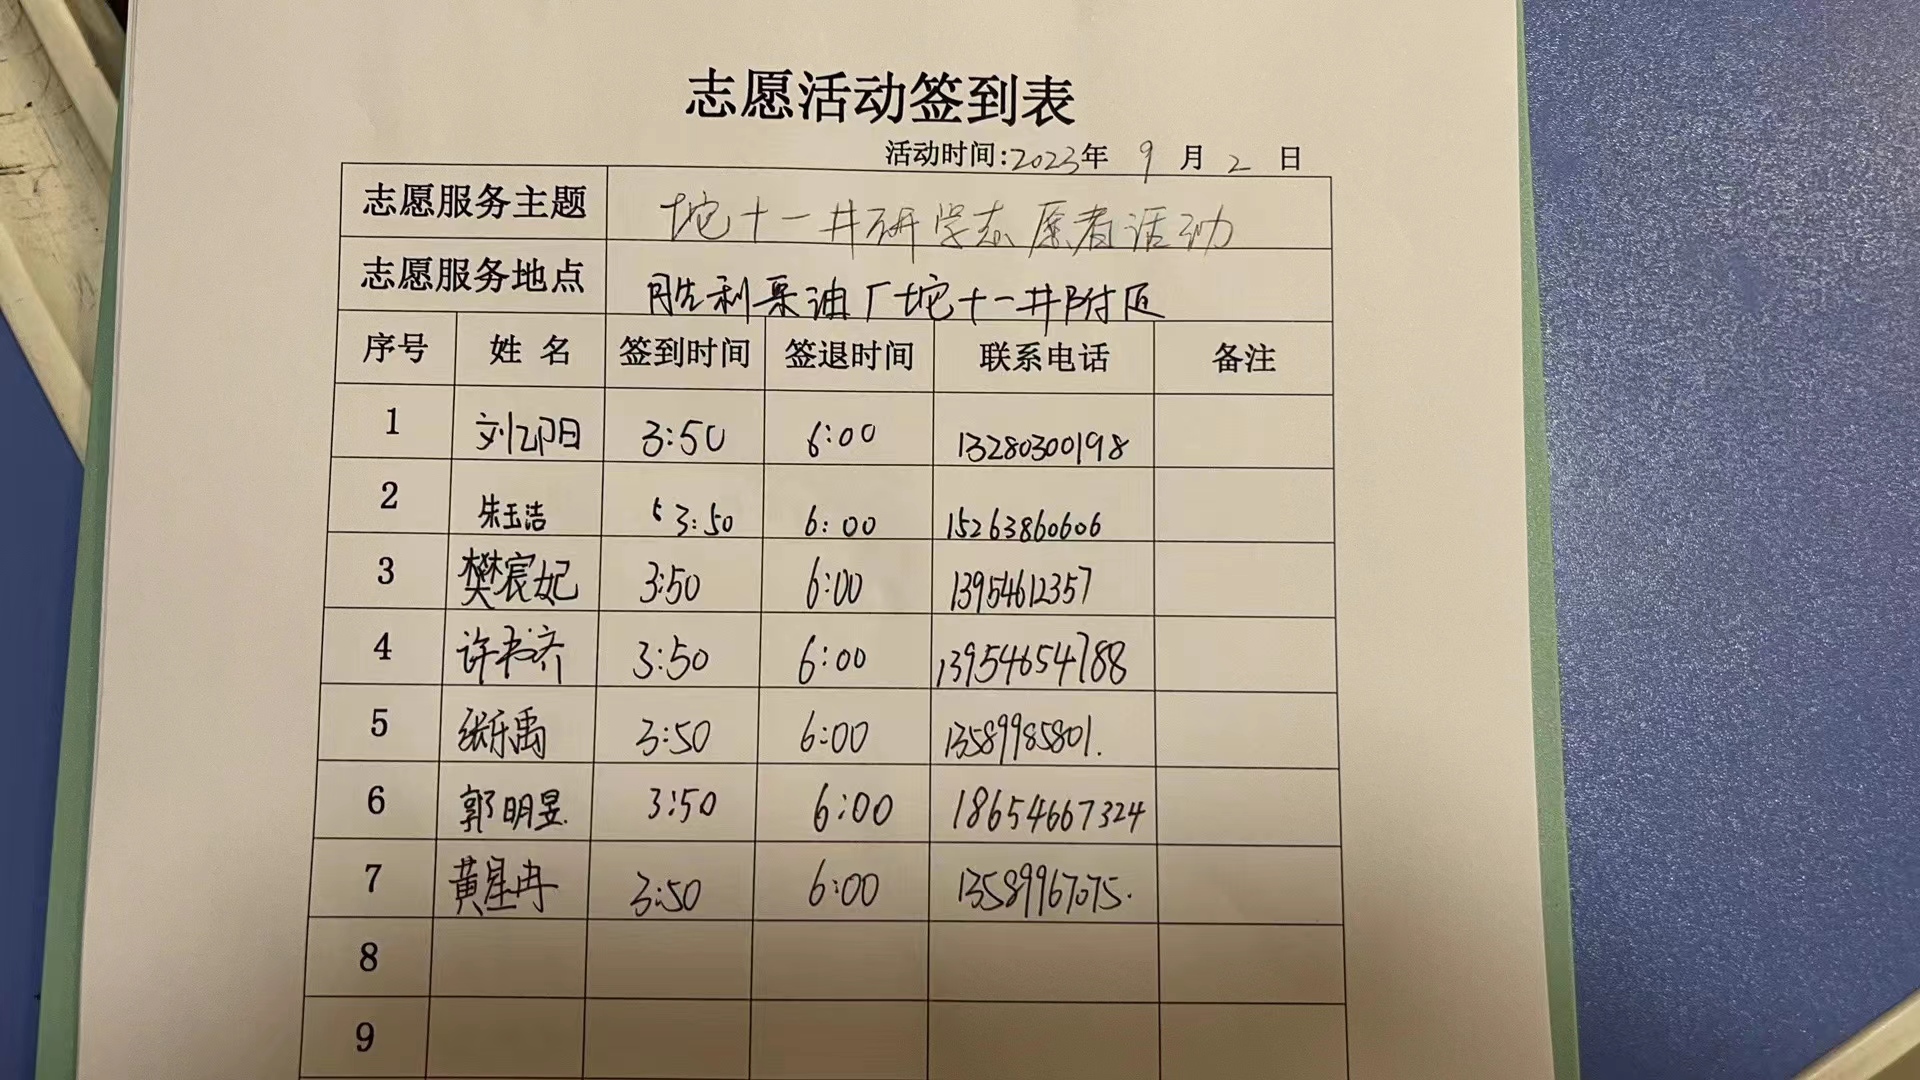 志愿活动签到表
活动时间:2023年 9 月 2 日
志愿服务主题 坨十一井研学志愿者活动
志愿服务地点 胜利采油厂坨十一井附近
序号 姓 名 签到时间 签退时间 联系电话 备注
1 刘邵阳 3:50 6:00 13280300198
2 朱玉洁 3:50 6:00 15263860606
3 樊宸妃 3:50 6:00 13954612357
4 许书齐 3:50 6:00 13954654788
5 张乐禹 3:50 6:00 13589985801.
6 郭明昱 3:50 6:00 18654667324
7 黄星冉 3:50 6:00 13589967075.
8
9